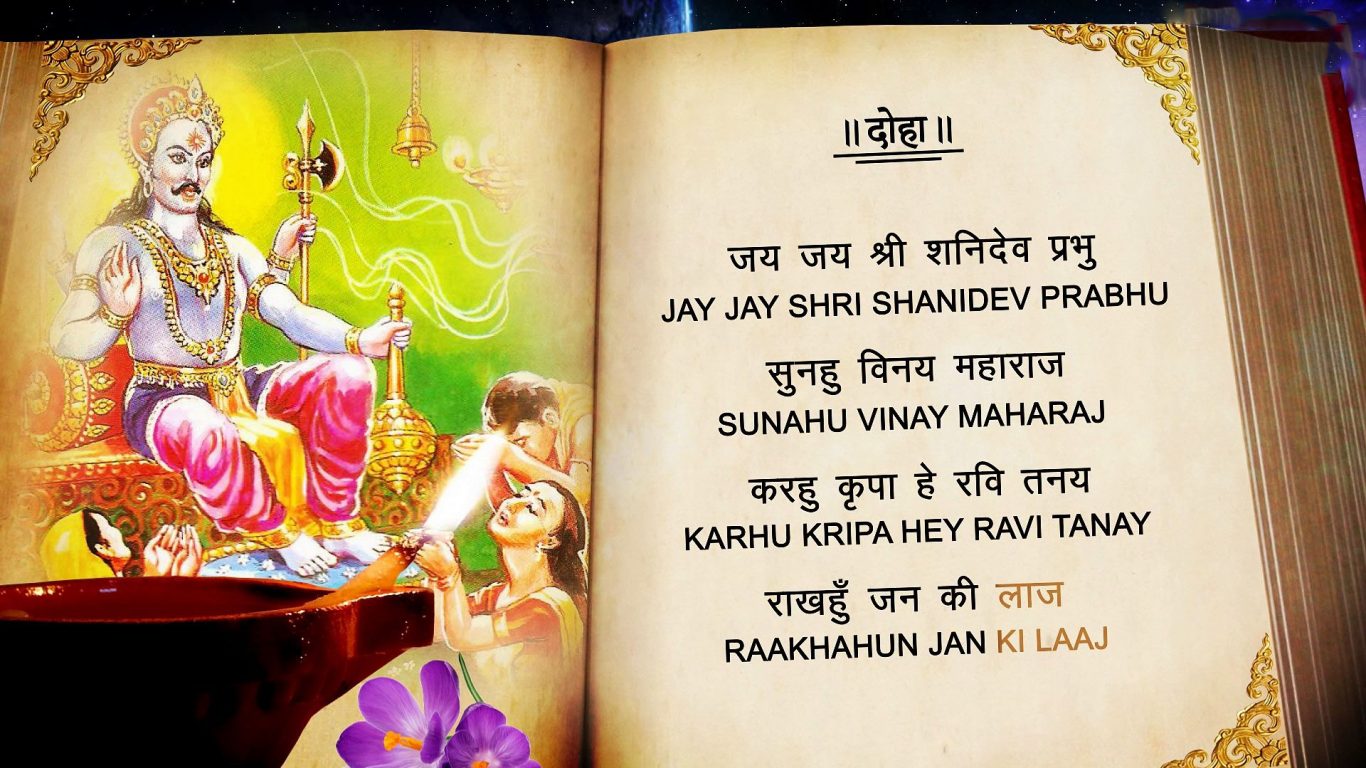 ॥दोहा॥
जय जय श्री शनिदेव प्रभु
JAY JAY SHRI SHANIDEV PRABHU
सुनहु विनय महाराज
SUNAHU VINAY MAHARAJ
करहु कृपा हे रवि तनय
KARHU KRIPA HEY RAVI TANAY
राखहुँ जन की लाज
RAAKHAHUN JAN KI LAAJ